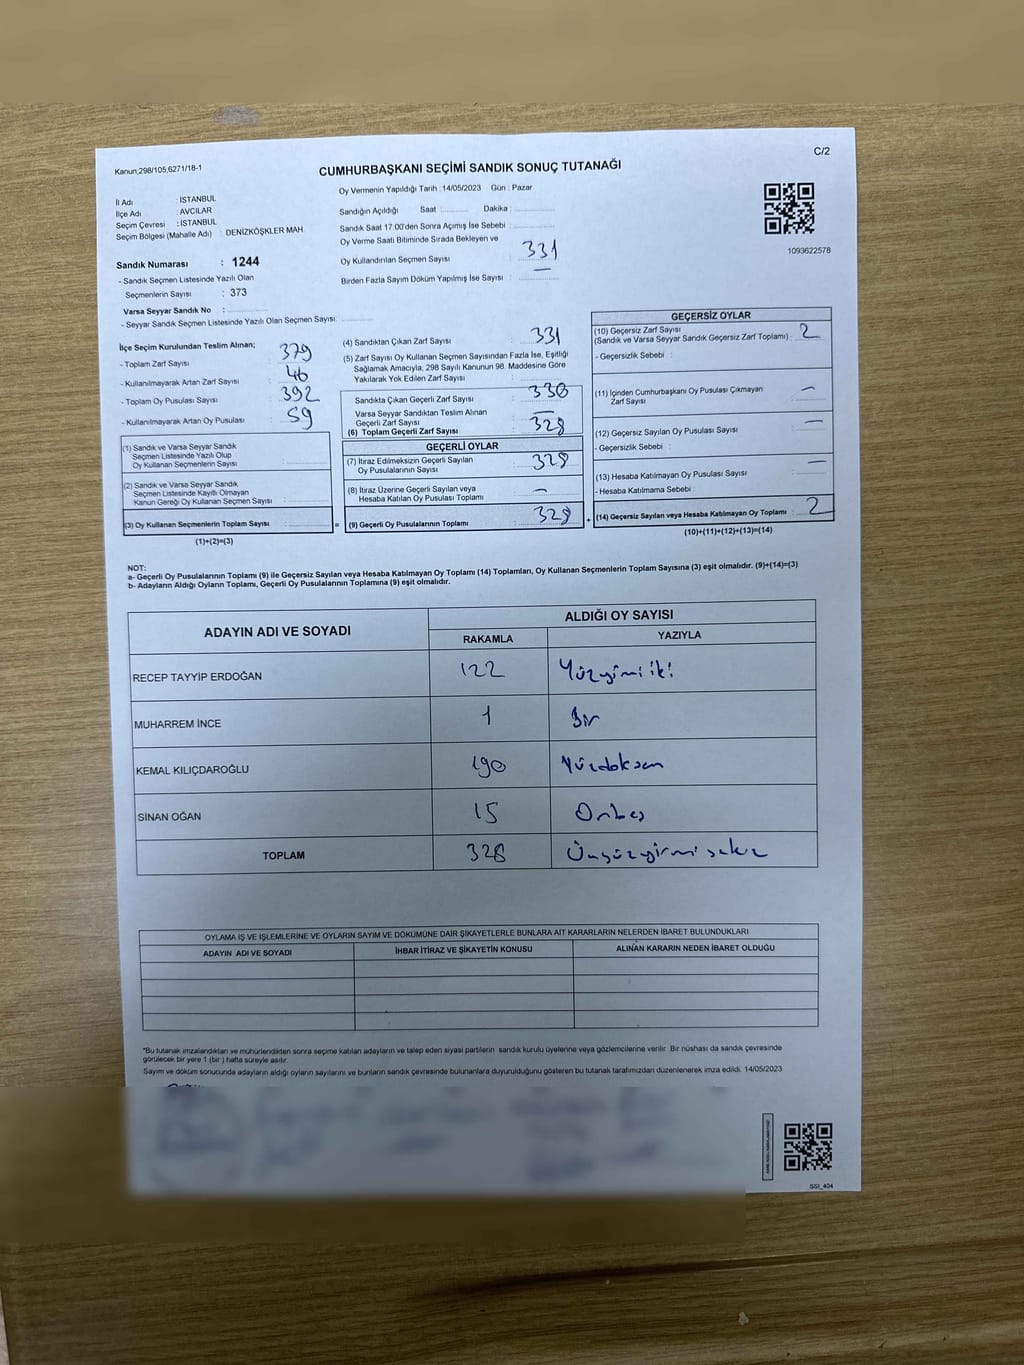 Kanun,298/105,6271/18-1
C/2
CUMHURBAŞKANI SEÇİMİ SANDIK SONUÇ TUTANAĞI
İl Adı : İSTANBUL
İlçe Adı : AVCILAR
Seçim Çevresi : İSTANBUL
Seçim Bölgesi (Mahalle Adı) : DENİZKÖŞKLER MAH
Sandık Numarası : 1244
- Sandık Seçmen Listesinde Yazılı Olan
Seçmenlerin Sayısı : 373
Varsa Seyyar Sandık No :
- Seyyar Sandık Seçmen Listesinde Yazılı Olan Seçmen Sayısı:
Oy Vermenin Yapıldığı Tarih : 14/05/2023 Gün : Pazar
Sandığın Açıldığı Saat Dakika :
Sandık Saat 17:00'den Sonra Açımış İse Sebebi :
Oy Verme Saati Bitiminde Sırada Bekleyen ve
Oy Kullandırılan Seçmen Sayısı : 331
Birden Fazla Sayım Döküm Yapılmış İse Sayısı : —
1093622578
İlçe Seçim Kurulundan Teslim Alınan;
- Toplam Zarf Sayısı : 379
- Kullanılmayarak Artan Zarf Sayısı : 46
- Toplam Oy Pusulası Sayısı : 392
- Kullanılmayarak Artan Oy Pusulası : 59
(1) Sandık ve Varsa Seyyar Sandık
Seçmen Listesinde Yazılı Olup
Oy Kullanan Seçmenlerin Sayısı :
(2) Sandık ve Varsa Seyyar Sandık
Seçmen Listesinde Kayıtlı Olmayan
Kanun Gereği Oy Kullanan Seçmen Sayısı :
(3) Oy Kullanan Seçmenlerin Toplam Sayısı : =
(1)+(2)=(3)
(4) Sandıktan Çıkan Zarf Sayısı : 331
(5) Zarf Sayısı Oy Kullanan Seçmen Sayısından Fazla İse, Eşitliği
Sağlamak Amacıyla, 298 Sayılı Kanunun 98. Maddesine Göre
Yakılarak Yok Edilen Zarf Sayısı :
Sandıkta Çıkan Geçerli Zarf Sayısı : 330
Varsa Seyyar Sandıktan Teslim Alınan
Geçerli Zarf Sayısı : —
(6) Toplam Geçerli Zarf Sayısı : 328
GEÇERLİ OYLAR
(7) İtiraz Edilmeksizin Geçerli Sayılan
Oy Pusulalarının Sayısı : 328
(8) İtiraz Üzerine Geçerli Sayılan veya
Hesaba Katılan Oy Pusulası Toplamı : —
(9) Geçerli Oy Pusulalarının Toplamı : 328 +
GEÇERSİZ OYLAR
(10) Geçersiz Zarf Sayısı
(Sandık ve Varsa Seyyar Sandık Geçersiz Zarf Toplamı) : 2
- Geçersizlik Sebebi :
(11) İçinden Cumhurbaşkanı Oy Pusulası Çıkmayan
Zarf Sayısı : —
(12) Geçersiz Sayılan Oy Pusulası Sayısı : —
- Geçersizlik Sebebi :
(13) Hesaba Katılmayan Oy Pusulası Sayısı : —
- Hesaba Katılmama Sebebi :
(14) Geçersiz Sayılan veya Hesaba Katılmayan Oy Toplamı : 2
(10)+(11)+(12)+(13)=(14)
NOT:
a- Geçerli Oy Pusulalarının Toplamı (9) ile Geçersiz Sayılan veya Hesaba Katılmayan Oy Toplamı (14) Toplamları, Oy Kullanan Seçmenlerin Toplam Sayısına (3) eşit olmalıdır. (9)+(14)=(3)
b- Adayların Aldığı Oyların Toplamı, Geçerli Oy Pusulalarının Toplamına (9) eşit olmalıdır.
ADAYIN ADI VE SOYADI
ALDIĞI OY SAYISI
RAKAMLA YAZIYLA
RECEP TAYYİP ERDOĞAN 122 Yüzyirmiiki
MUHARREM İNCE 1 Bir
KEMAL KILIÇDAROĞLU 190 Yüzdoksan
SİNAN OĞAN 15 Onbeş
TOPLAM 328 Üçyüzyirmisekiz
OYLAMA İŞ VE İŞLEMLERİNE VE OYLARIN SAYIM VE DÖKÜMÜNE DAİR ŞİKAYETLERLE BUNLARA AİT KARARLARIN NELERDEN İBARET BULUNDUKLARI
ADAYIN ADI VE SOYADI İHBAR İTİRAZ VE ŞİKAYETİN KONUSU ALINAN KARARIN NEDEN İBARET OLDUĞU
"Bu tutanak imzalandıktan ve mühürlendikten sonra seçime katılan adayların ve talep eden siyasi partilerin sandık kurulu üyelerine veya gözlemcilerine verilir. Bir nüshası da sandık çevresinde
görülecek bir yere 1 (bir ) hafta süreyle asılır.
Sayım ve döküm sonucunda adayların aldığı oyların sayılarını ve bunların sandık çevresinde bulunanlara duyurulduğunu gösteren bu tutanak tarafımızdan düzenlenerek imza edildi. 14/05/2023
SSI_404